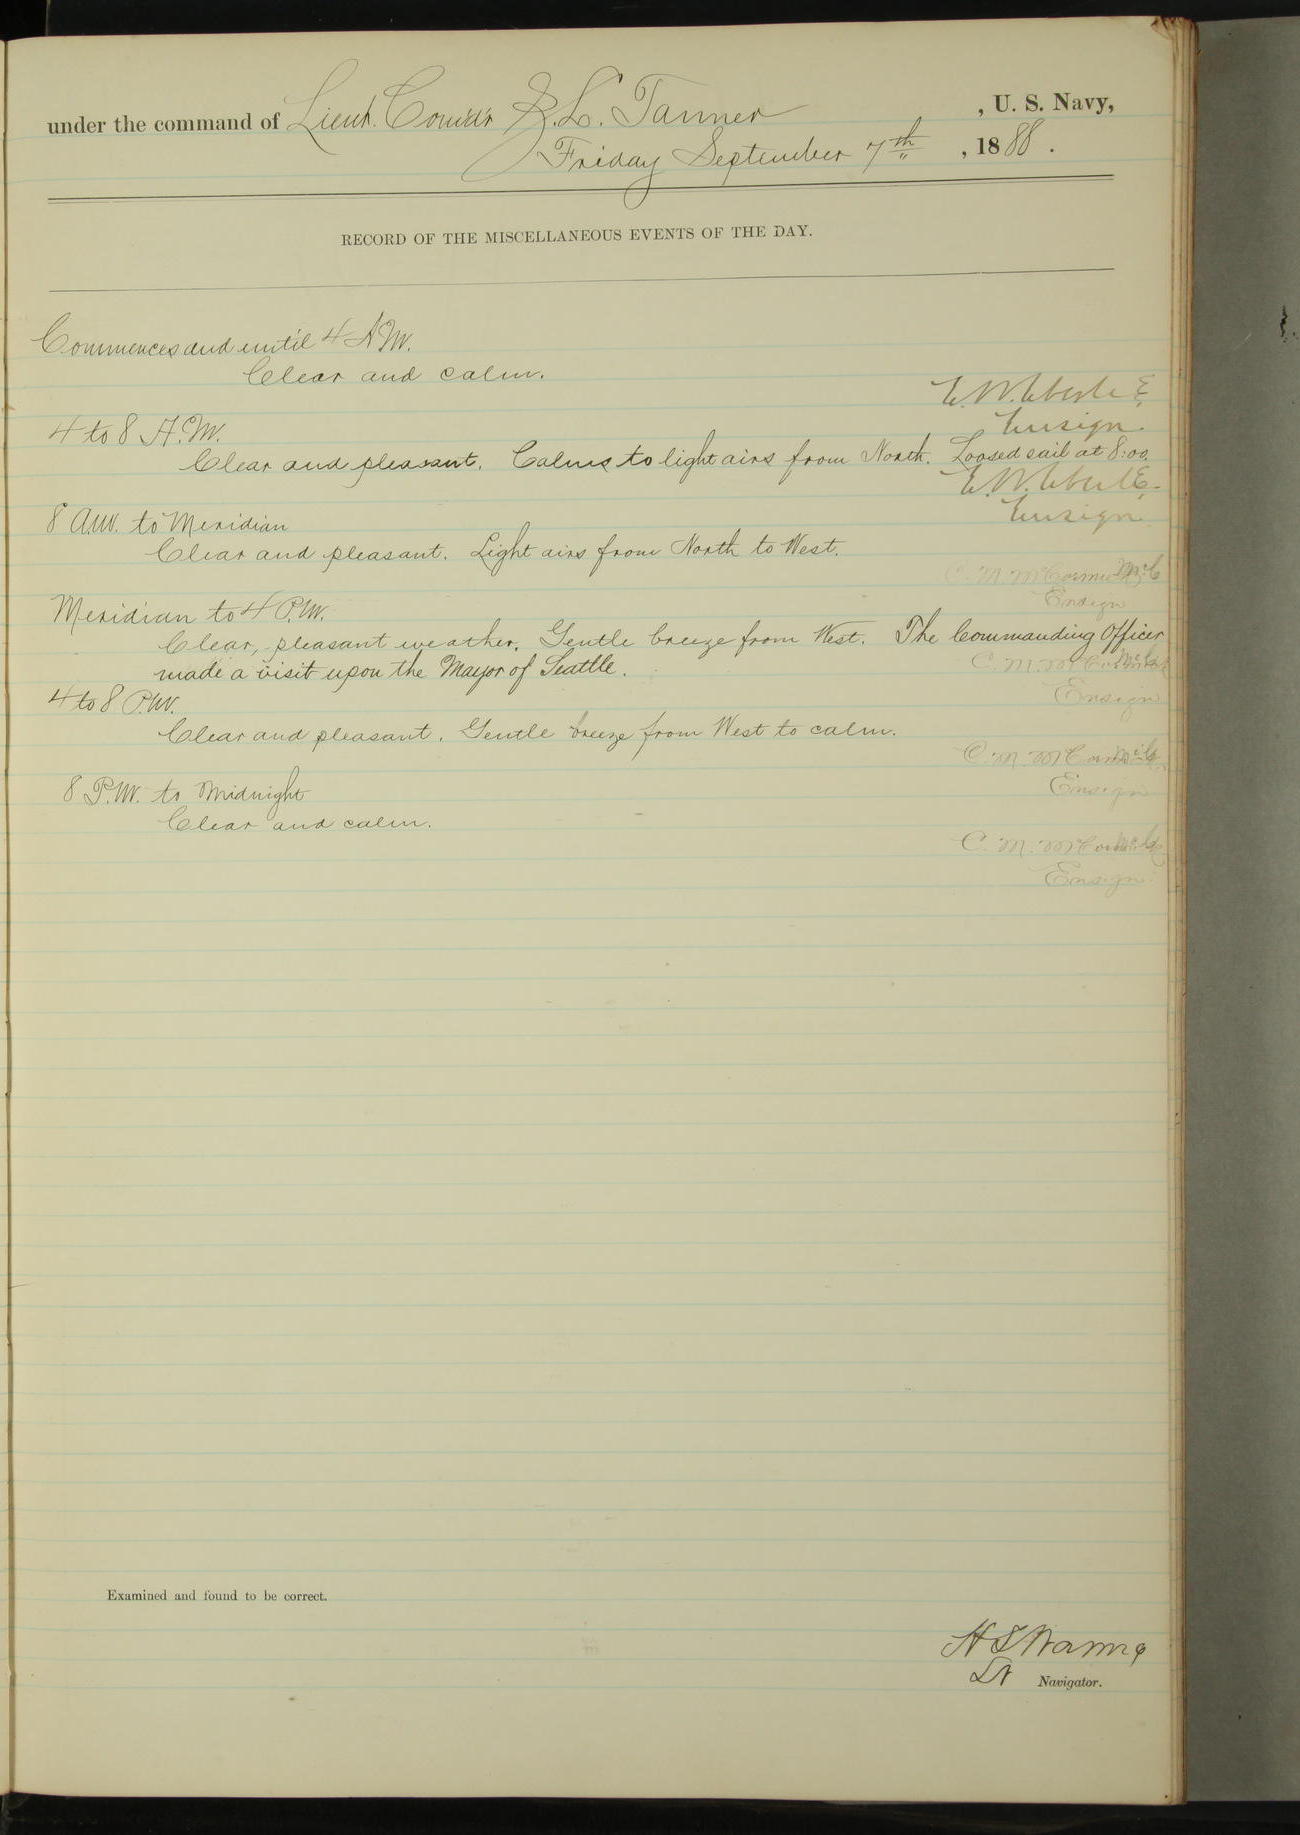 under the command of Lieut. Comdr Z. L. Tanner, U. S. Navy,
Friday September 7th, 1888.
RECORD OF THE MISCELLANEOUS EVENTS OF THE DAY.
Commences and until 4 A.M.
Clear and calm.
E. W. Eberle E.
Ensign.
4 to 8 A.M.
Clear and pleasant. Calms to light airs from North. Loosed sail at 8:00.
E. W. Eberle E.
Ensign.
8 A.M. to Meridian
Clear and pleasant. Light airs from North to West.
C. M. McCormick
Ensign
Meridian to 4 P.M.
Clear, pleasant weather. Gentle breeze from West. The Commanding Officer
made a visit upon the Mayor of Seattle.
C. M. McCormick
Ensign
4 to 8 P.M.
Clear and pleasant. Gentle breeze from West to calm.
C. M. McCormick
Ensign
8 P.M. to Midnight
Clear and calm.
C. M. McCormick
Ensign
Examined and found to be correct.
H S Waring
Lt Navigator.